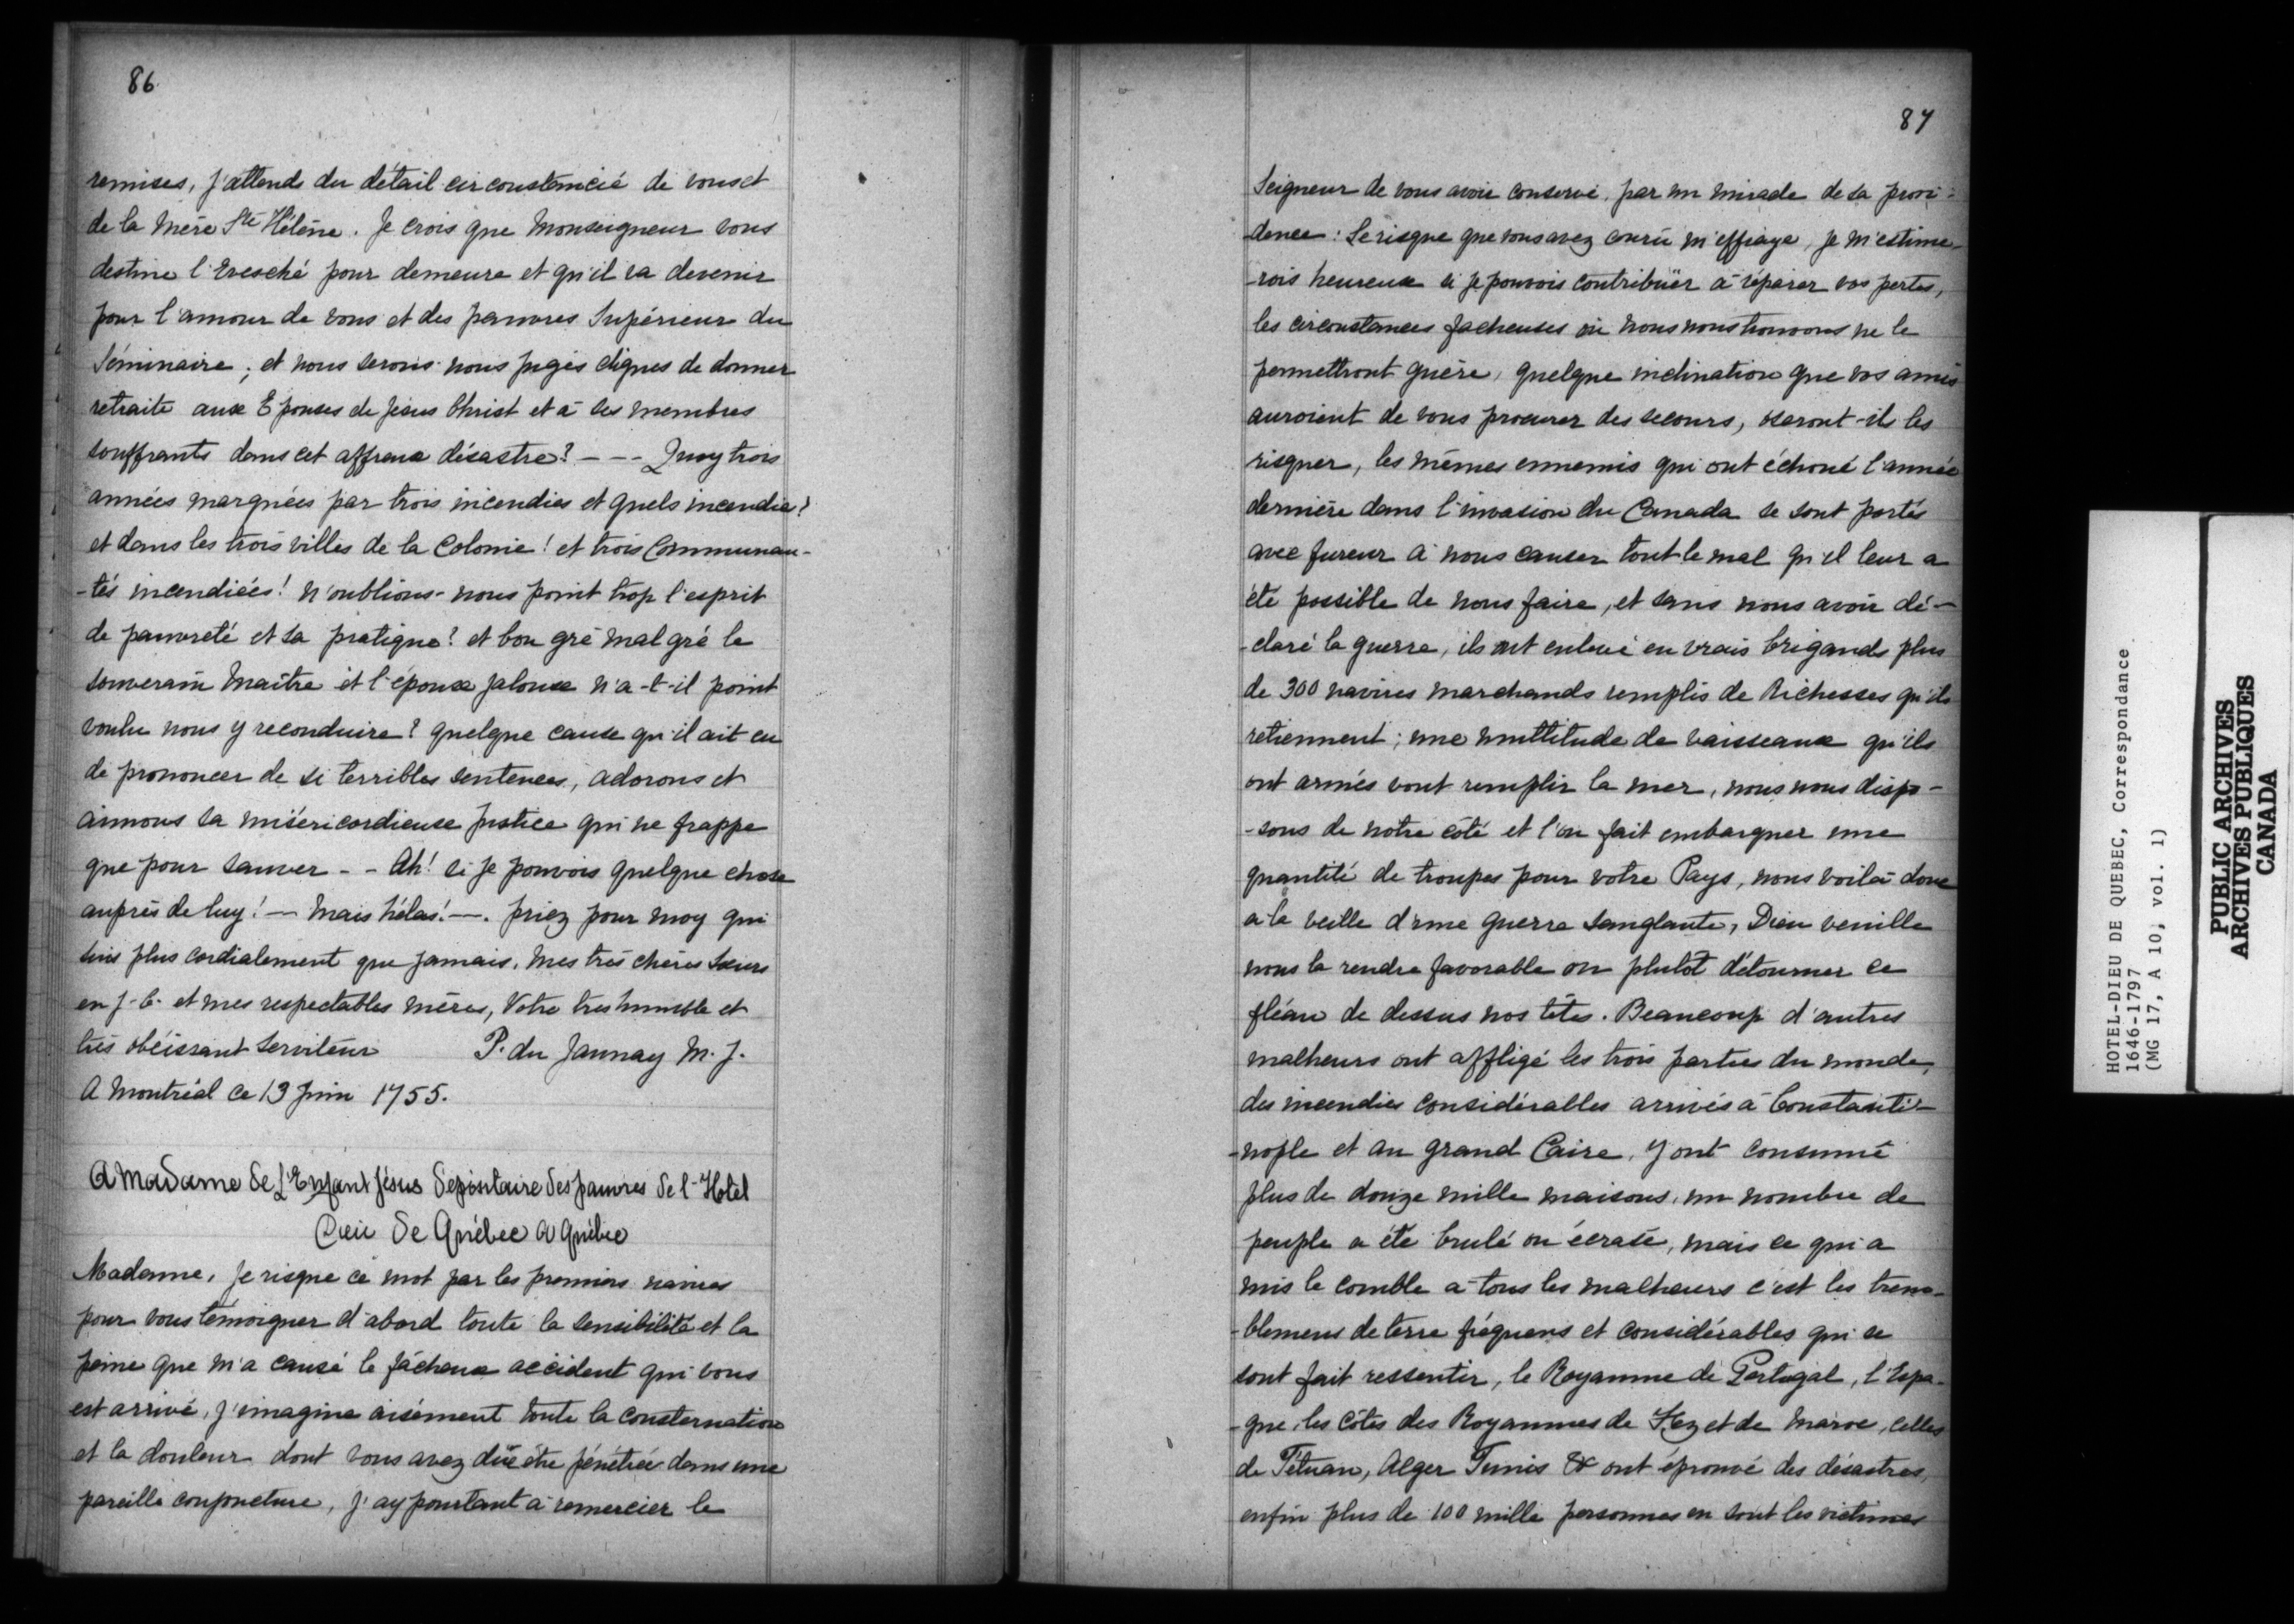 86
remises, j'attends du détail circonstancié de vous et
de la mère Ste Hélène. Je crois que Monseigneur vous
destine l'Evesché pour demeure et qu'il va devenir
pour l'amour de vous et des pauvres Supérieur du
Séminaire; et nous serons-nous jugés dignes de donner
retraite aux Epouses de Jésus Christ et à ses membres
souffrants dans cet affreux désastre? --- Quoy trois
années marquées par trois incendies et quels incendies?
et dans les trois villes de la Colonie! et trois Communau-
-tés incendiées! n'oublions-nous point trop l'esprit
de pauvreté et sa pratique? et bon gré mal gré le
souverain Maître et l'époux jaloux n'a-t-il point
voulu nous y reconduire? quelque cause qu'il ait eu
de prononcer de si terribles sentences, adorons et
aimons sa miséricordieuse justice qui ne frappe
que pour sauver -- Ah! si je pouvois quelque chose
auprès de luy! — mais hélas! —. priez pour moy qui
suis plus cordialement que jamais, mes très chères Sœurs
en J-C- et mes respectables mères, Votre très humble et
très obéissant Serviteur P. du Jaunay M. J.
A Montréal ce 13 Juin 1755.
A Madame de L'Enfant Jésus Dépositaire des pauvres de l-Hotel
Dieu de Québec A Québec
Madame, je risque ce mot par les premiers navires
pour vous témoigner d'abord toute la sensibilité et la
peine que m'a causé le fâcheux accident qui vous
est arrivé, j'imagine aisément toute la consternation
et la douleur dont vous avez düe être pénétrée dans une
pareille conjoncture, j'ay pourtant à remercier le
87
Seigneur de vous avoir conservé, par un miracle de sa provi-
-dence: Le risque que vous avez couru m'effraye, je m'estime-
-rois heureux si je pouvois contribüer à réparer vos pertes,
les circonstances facheuses où nous nous trouvons ne le
permettront guère, quelque inclination que vos amis
auroient de vous procurer des secours, oseront-ils les
risquer, les mêmes ennemis qui ont échoué l'année
dernière dans l'invasion du Canada se sont portés
avec fureur à nous causer tout le mal qu'il leur a
été possible de nous faire, et sans nous avoir dé-
-claré la guerre, ils ont enlevé en vrais brigands plus
de 300 navires marchands remplis de Richesses qu'ils
retiennent; une multitude de vaisseaux qu'ils
ont armés vont remplir la mer, nous nous dispo-
-sons de notre côté et l'on fait embarquer une
quantité de troupes pour votre Pays, nous voilà donc
a la veille d'une guerre sanglante, Dieu veuille
nous la rendre favorable ou plutot détourner ce
fléau de dessus nos têtes. Beaucoup d'autres
malheurs ont affligé les trois parties du monde,
des incendies considérables arrivés à Constanti-
-nople et au grand Caire, y ont consumé
plus de douze mille maisons, un nombre de
peuple a été brulé ou écrasé, mais ce qui a
mis le comble a tous les malheurs c'est les trem-
-blemens de terre fréquens et considérables qui se
sont fait ressentir, le Royaume de Portugal, l'Espa-
-gne, les côtes des Royaumes de Fez et de Maroc, celles
de Tétuan, Alger Tunis & ont éprouvé des désastres,
enfin plus de 100 mille personnes en sont les victimes
HOTEL-DIEU DE QUEBEC, Correspondance
1646-1797
(MG 17, A 10, vol. 1)
PUBLIC ARCHIVES
ARCHIVES PUBLIQUES
CANADA